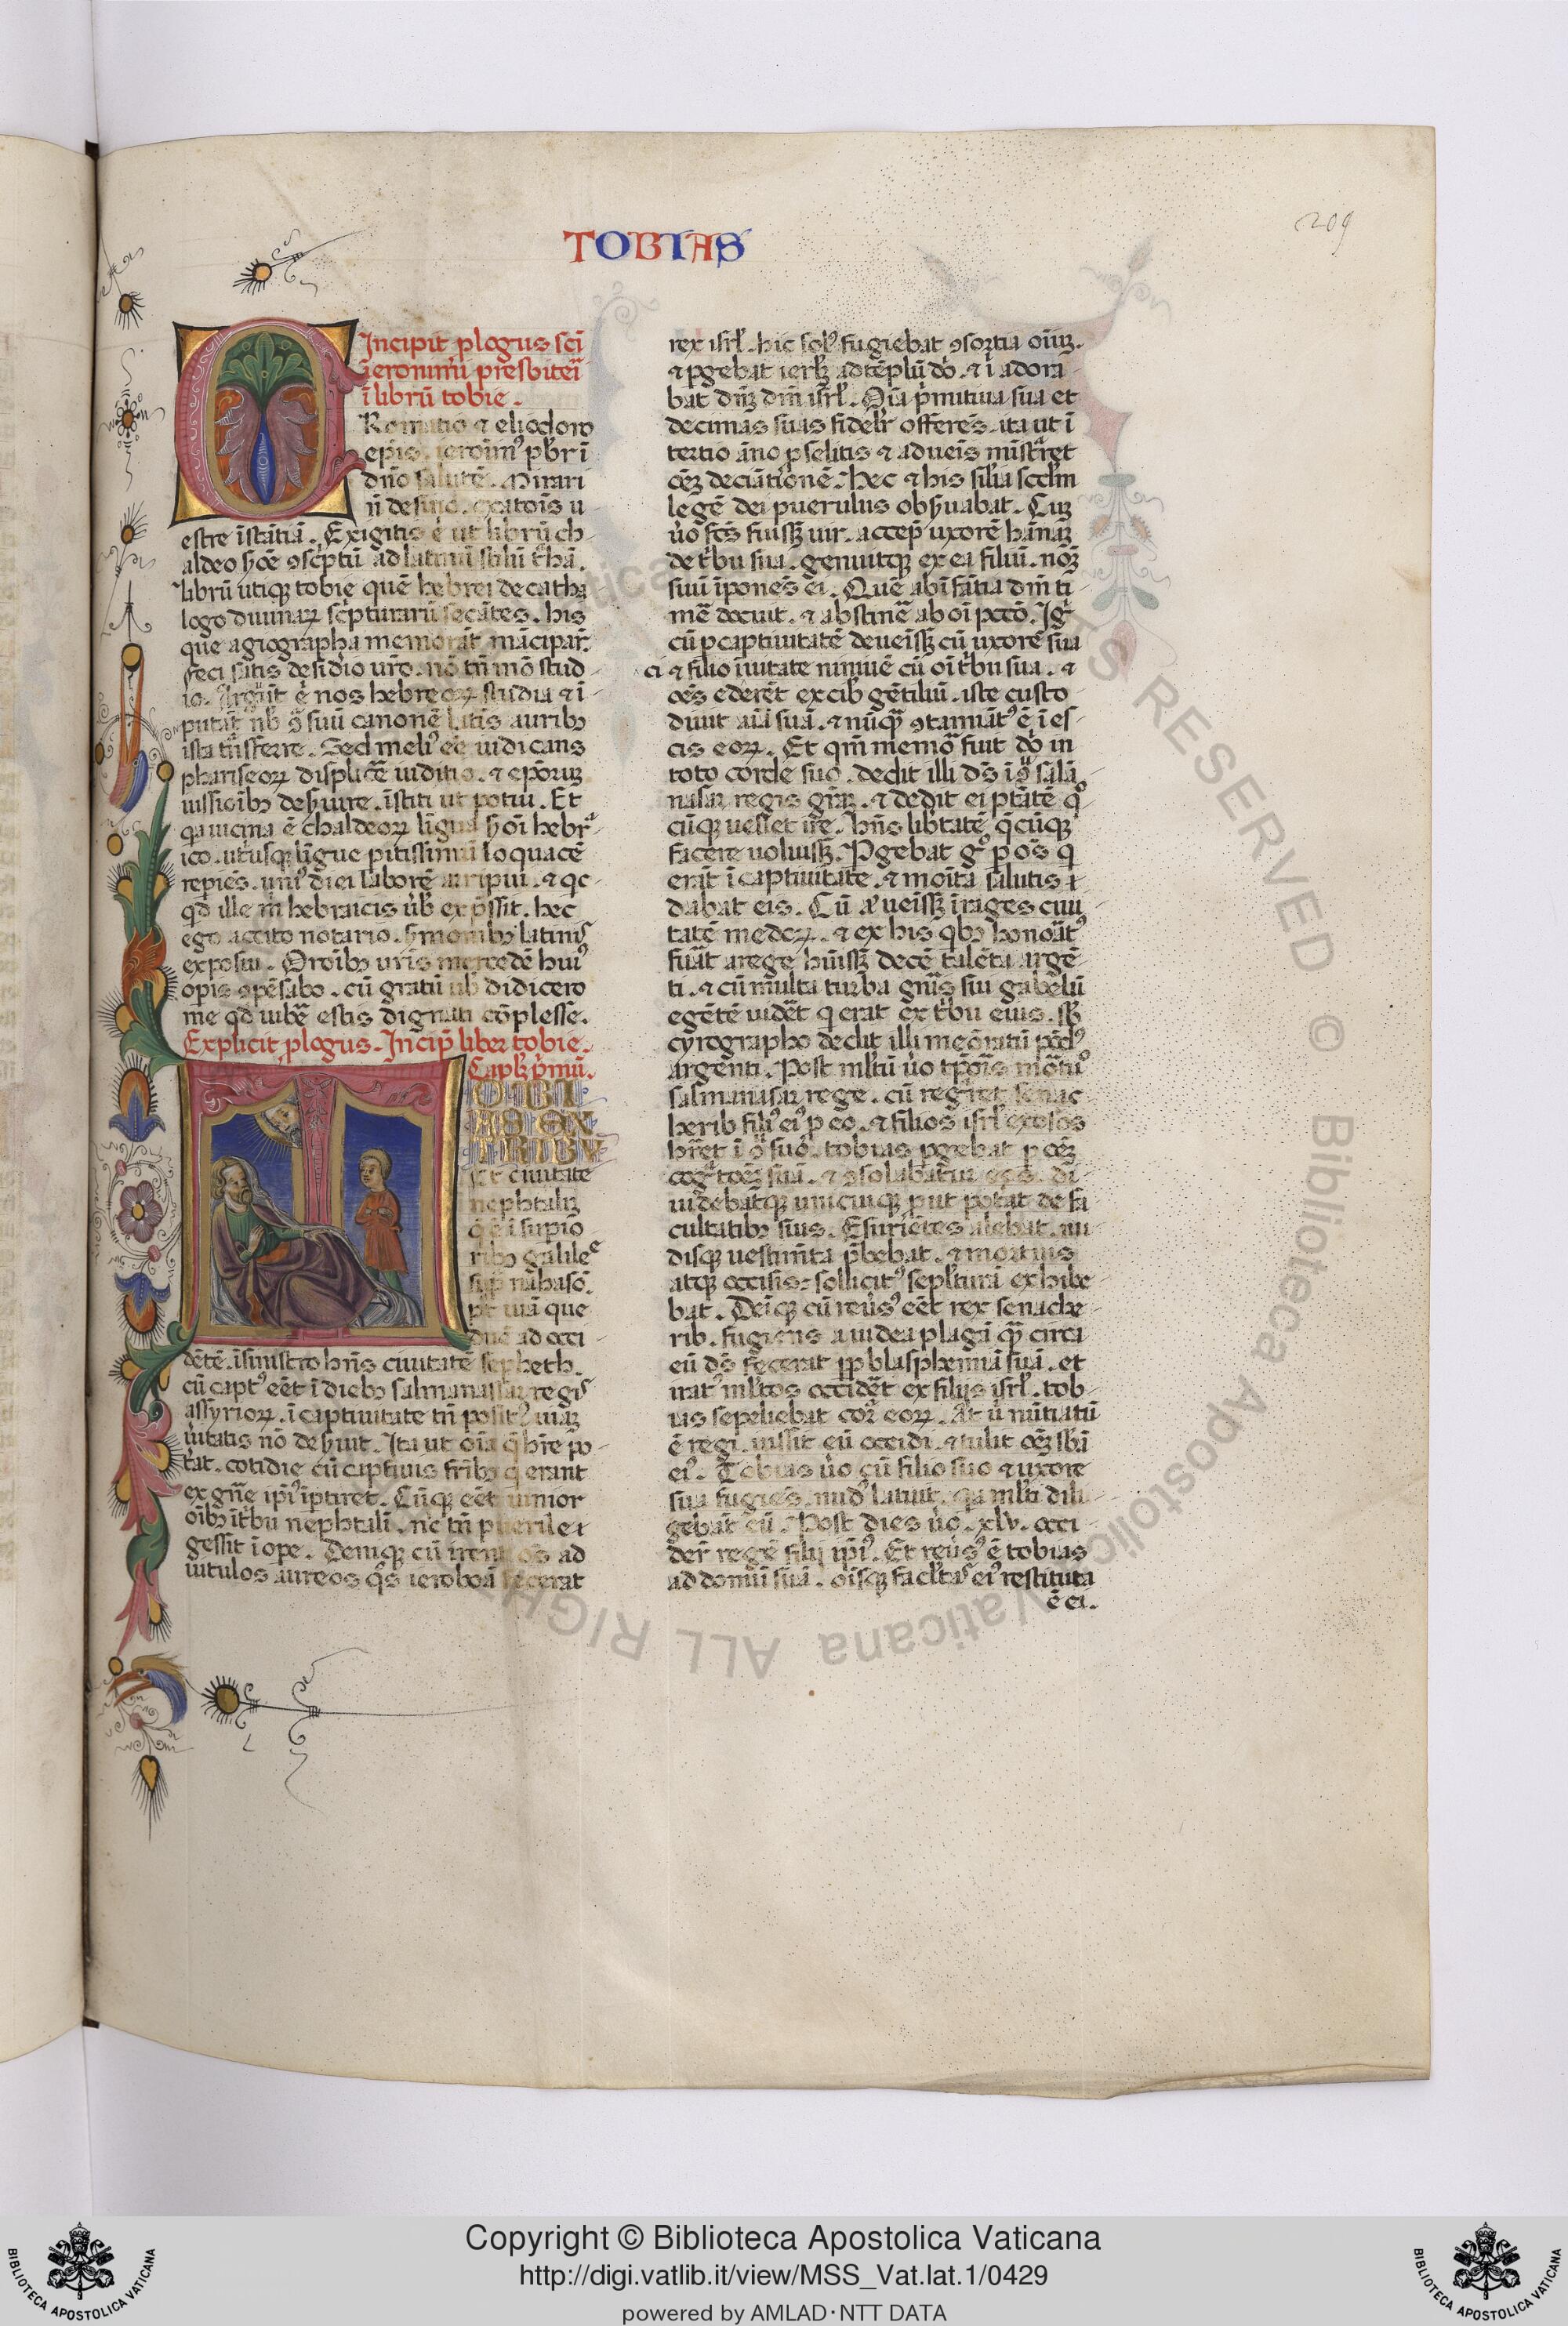 TOBIAS
209
Incipit plogus sci
ieronimi presbiteri
ī librū tobie.
Romatio et eliodoro
epis. ieronimꝰ pbr ī
dn̄o salutē. Mirari
n̄ desino. exatoīs u
estre īstātiā. Exigitis ē ut librū ch
aldeo ẜcē ꝯscptū ad latinū stilū thā.
librū utiqꝫ tobie quē hebrei de catha
logo diuinaꝝ scpturarū secātes. his
que agiographa memorāt mācipar̄.
feci satis desidio uro. nō tn̄ mō stud
io. Arguūt ē nos hebreoꝝ studia ⁊ ī
putāt nb̄ ꝯ suū canonē latis auribꝫ
ista trāsferre. Sed meliꝰ eē iudicans
phariseoꝝ displicē iuditio. ⁊ epōruꝫ
iussiōibꝫ deẜuire. īstiti ut potui. Et
qa uicina ē chaldeoꝝ līgua ẜōi hebr
ico. utusqꝫ līgue pitissimū loquacē
repiēs. uniꝰ diei laborē arripui. ⁊ qc
qd ille m̄ hebraicis ūb exp̄ssit. hec
ego accito notario. ẜmonibꝫ latinis
exposui. Oroībꝫ uris mercedē huiꝰ
opis ꝯpēsabo. cū gratū ub̄ didicero
me qd iubē estis dignati cōplesse.
Explicit plogus. Incip̄ liber tobie.
Caplꝫ pmū.
OBI
AS EX
TRIBV
et ciuitate
nephtaliꝫ
q̄ ē ī supio
ribꝫ galilee
sup̄ nahasō.
pt uiā que
ducē ad occi
dētē. īsinistro hn̄s ciuitatē sepheth.
cū captꝰ eēt ī diebꝫ salmanassar regis
assyrioꝝ. ī captiuitate tn̄ positꝰ uiaꝫ
ūitatis nō deẜuit. Ita ut oīa q̄ hr̄e po
tat. cotidie cū captiuis fribꝫ q erant
ex gn̄e ipiꝰ īptiret. Cūqꝫ eēt iunior
oībꝫ ītbu nephtali. nc tn̄ puerile
gessit ī ope. Deniqꝫ cū irent oēs ad
uitulos aureos qs ieroboā fecerat
rex isrl. hic solꝰ fugiebat ꝯsortia oiūꝫ.
⁊ pgebat ierlꝫ ad tēplū dō. ⁊ ī adora
bat dn̄ꝫ dm̄ isrl. Oīa pmitiua sua et
decimas suas fidelr offerēs. ita ut ī
tertio āno pselitis ⁊ adueīs mīstret
oēꝫ deciātionē. Hec ⁊ his silia scdm
legē dei puerulus obẜuabat. Cuꝫ
ūo fcs fuisꝫ uir. accep̄ uxorē hannaꝫ
de tbu sua. genuitqꝫ ex ea filiū. nōꝫ
suū īponēs ei. Quē ab īfātia dm̄ ti
mē docuit. ⁊ abstinē ab oī pctō. Igr
cū p captiuitatē deueīsꝫ cū uxorē sua
ci ⁊ filio īuitate niniuē cū oī tbu sua. ⁊
oēs ederēt ex cib gētiliū. iste custo
diuit aiā suā. ⁊ nūqꝫ ꝯtamiātꝰ ē ī es
cis eoꝝ. Et qm̄ memor fuit dō in
toto corde suo. dedit illi ds̄ ī ꝯ salā
nasar regis grāꝫ. ⁊ dedit ei ptātē qo
cūqꝫ uellet ire. hn̄s libtatē q̄cūqꝫ
facere uoluisꝫ. Pgebat go p oēs q
erāt ī captiuitate. ⁊ moita salutis
dabat eis. Cū aū ueīsꝫ ī rages ciui
tatē medoꝝ. ⁊ ex his qbꝫ honoātꝰ
fuāt a rege hūisꝫ decē talēta argē
ti. ⁊ cū multa turba gn̄is sui gabelū
egētē uidēt q erat ex tbu eius. sꝫ
cyrographo dedit illi meōratū pōdꝰ
argenti. Post mltū ūo tp̄ois mōtuo
salmanasar rege. cū regret senac
herib filiꝰ eiꝰ p eo. ⁊ filios isrl exosos
hret ī ꝯ suo. tobias pgebat p oēꝫ
cogtoēꝫ suā. ⁊ ꝯsolabatur eos. di
uidebatqꝫ unicuiqꝫ put potat de fa
cultatibꝫ suis. Esuriētes alebat. nu
disqꝫ uestim̄ta p̄bebat. ⁊ mortuis
atqꝫ occisis sollicitꝰ sepltura exhibe
bat. Deīqꝫ cū reūsꝰ eēt rex senache
rib. fugiens a iudea plagā qꝫ circa
eū ds̄ fecerat pp blasphemiā suā. et
iratꝰ mltos occidēt ex filiis isrl. tob
ias sepeliebat cor̄ eoꝝ. At ū nūtiatū
ē regi. iussit eū occidi. ⁊ tulit oēꝫ sbā
eiꝰ. Tobias ūo cū filio suo ⁊ uxore
sua fugiēs. nudꝰ latuit. qa mlti dili
gebāt eū. Post dies ūo. xlv. occi
der̄ regē filii ipiꝰ. Et reūsꝰ ē tobias
ad domū suā. oīsqꝫ facltas eiꝰ restituta
ē ei.
ALL RIGHTS RESERVED © Biblioteca Apostolica Vaticana
Copyright © Biblioteca Apostolica Vaticana
http://digi.vatlib.it/view/MSS_Vat.lat.1/0429
powered by AMLAD·NTT DATA
BIBLIOTECA APOSTOLICA VATICANA
BIBLIOTECA APOSTOLICA VATICANA